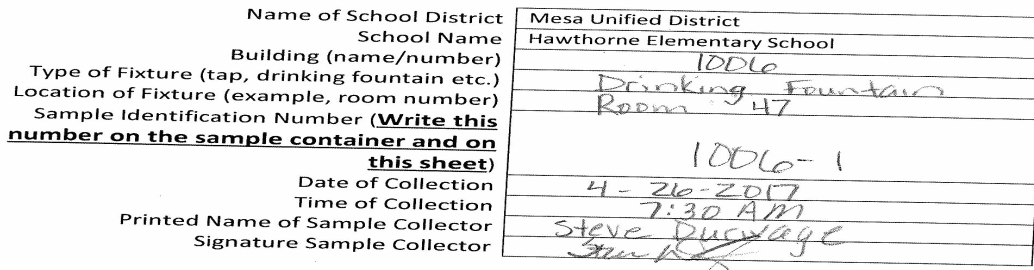 Name of School District Mesa Unified District
School Name Hawthorne Elementary School
Building (name/number) 1006
Type of Fixture (tap, drinking fountain etc.) Drinking Fountain
Location of Fixture (example, room number) Room 47
Sample Identification Number (Write this
number on the sample container and on
this sheet) 1006-1
Date of Collection 4-26-2017
Time of Collection 7:30 AM
Printed Name of Sample Collector Steve
Signature Sample Collector